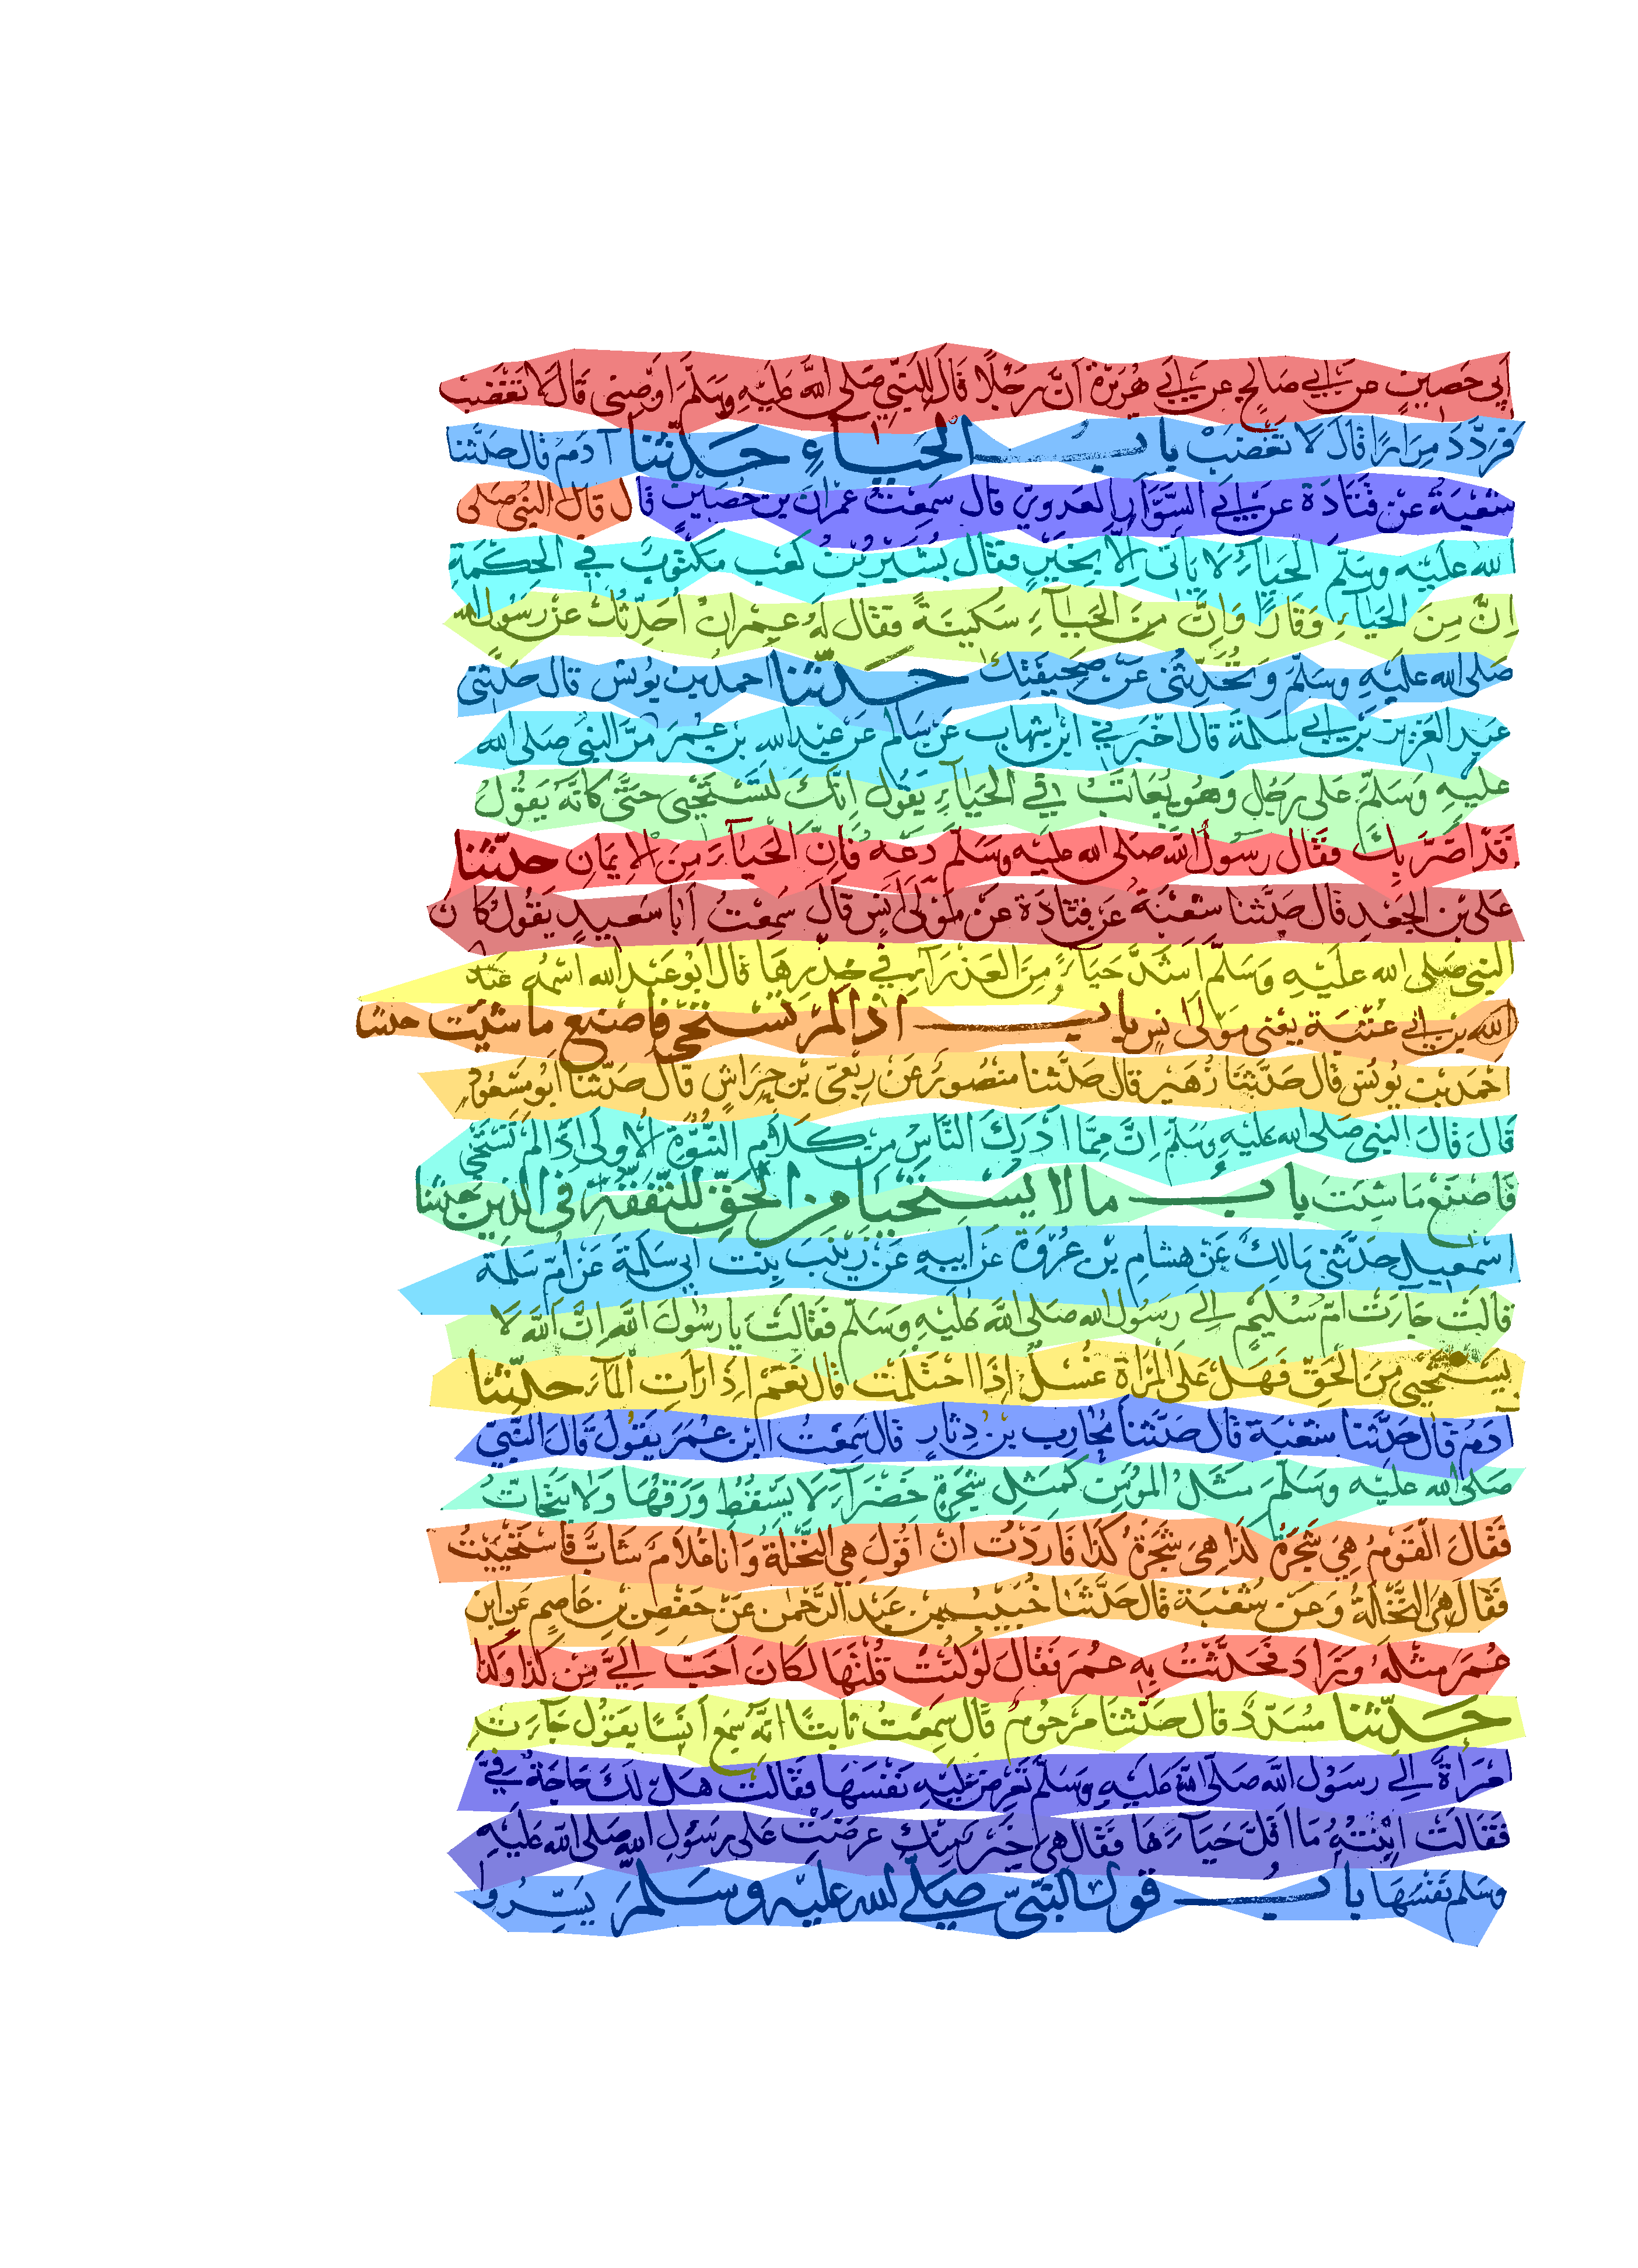 اَبِي حَصِينٍ عن ابي صَالحٍ عن ابي هُرَيرَة اَنَّ رَجُلًا قَالَ للِنَّبِيِّ صَلى اللهُ عَلَيْهِ وسَلَّمَ اَوْصِنِى قَالَ لاَ تَغْضَبْ
فَرَدَّدَ مِرَارًا قَالَ لَا تَغْضَبْ باب الحَيَاءِ حَدّثنا آدَمُ قال حَدّثنا
شُعْبَةُ عَنْ قَتَادَة عن ابي السَّوَّارِ العَدَوِيّ قال سَمِعْتُ عِمْرانَ بن حُصَيْنٍ قَال قال النبيُّ صَلى
الله عَلَيْهِ وسَلَّمَ الحَيَاءُ لا يَأتى اِلَّا بِخَيْرٍ فقَال بُشَيْرُ بْنُ كَعْب مكتُوبٌ فِي الحِكْمَةِ
اِنَّ مِنَ الحَيَاءِ وَقَارًا وَاِنَّ مِنَ الحَيَاءِ سَكِينَةً فقَال لَهُ عِمْرانُ اُحَدِّثُكَ عَنْ رَسُول الله
صَلى الله عَليْهِ وسَلّمَ وَتُحَدِّثُنى عَنْ صَحِيفَتِكَ حَدّثنا احمدُ بن يُونس قال حَدَّثَنى
عَبد العَزِيز بن ابي سَلَمَةَ قال اَخْبَرَنِي ابن شِهَاب عَن سَالم عَن عَبْد الله بن عُمَرَ مَرَّ النبيُّ صَلى الله
عليْهِ وَسَلَّمَ عَلى رَجُلٍ وَهُوَ يُعَاتَبُ فِي الحَيَاءِ يَقُول اِنَّكَ لَتَسْتَحْيِى حَتَّى كَاَنَّهُ يَقُوْلُ
قَدْ اَضَرَّ بِكَ فقَال رَسُولُ الله صَلى الله عليْه وسَلّمَ دَعْهُ فَاِنَّ الحَيَاءَ مِنَ الاِيمَانِ حدثنا
عَلى بْن الجَعْدِ قَال حَدّثنا شُعْبَةُ عَنْ قَتَادَة عَنْ مَوْلَى اَنَس قَالَ سَمِعْتُ اَبَا سَعيدٍ يَقُولُ كَانَ
النبي صَلى الله عليْهِ وَسَلَّمَ اَشَدَّ حَيَاءً مِنَ العَذْرَاءِ فِي خِدْرِهَا قال اَبُو عَبْد الله اسْمُهُ عَبْد
الله بن ابي عُتْبَة يعْنى مَوْلَى انس باب اذا لَمْ تَسْتَحْي فاصْنع ما شِئت حدثنا
اَحْمَد بن يُونُسَ قال حَدّثنا زُهَيْر قال حَدّثنا مَنْصُور عَن رِبْعيّ بْن حِرَاشٍ قَالَ حَدّثنا اَبُو مَسْعُودٍ
قَالَ قالَ النبي صَلى الله عليْهِ وسَلَّمَ اِنَّ مِمَّا اَدْرَكَ النَّاسُ مِنْ كَلَامِ النُّبُوَّةِ الاُولَى اِذَا لَمْ تَسْتَحْي
فَاصْنَعْ مَا شِئتَ باب ما لا يُسْتَحْيَا من الحَقّ للتّفَقّهِ فى الدّين حدثنا
اسْمَعِيل حَدّثَنى مَالِكٌ عَنْ هشامِ بْنِ عُرْوَةَ عَن اَبِيهِ عَن زَيْنَبَ بِنْتِ اَبِى سَلَمَةَ عَنْ اُمّ سَلَمَة
قَالَتْ جَاءَتْ اُمّ سُلَيْمٍ اِلي رَسُول الله صَلى الله عَليْهِ وَسَلّمَ فَقَالتْ يَا رسُولَ اللهِ اِنَّ اللهَ لَا
يَسْتَحْيِى مِنَ الحَقّ فَهَلْ عَلَى المَرْاَةِ غُسْل اِذَا احْتَلَمَت قال نَعَمْ اِذَا رَاَتِ المَاءَ حدثنا
آدَمُ قَال حَدَّثنا شعْبَة قَال حَدّثنا مُحَارِب بْنُ دِثَارٍ قال سَمِعْتُ ابن عُمَرَ يَقُولُ قَالَ النَّبيّ
صَلى الله عليْه وسَلّمَ مَثَلُ المؤمِن كَمَثَلِ شَجَرَةٍ خَضْرَاءَ لا يَسْقُطُ وَرَقُهَا وَلَا يَتَحَاتُّ
فَقَالَ القَوْمُ هِيَ شَجَرَةُ كَذَا هِىَ شَجَرَةُ كَذَا فَاَرَدْتُ اَنْ اَقُولَ هِي النَّخْلَةُ وَاَنا غلَامٌ شَابٌّ فَاسْتَحْيَيْتُ
فَقَال هِىَ النَّخْلَةُ وَعَنْ شُعْبَة قَال حَدّثنا خُبَيْب بن عَبد الرَّحْمٰن عَنْ حَفْصِ بْنِ عَاصِمٍ عَن ابن
عُمَرَ مِثْلَهُ وَزَادَ فَحَدَّثْتُ بِهِ عُمَرَ فَقَالَ لَوْ كُنْتَ قُلْتَهَا لَكَانَ اَحَبَّ اِلَيَّ مِنْ كَذَا وكَذَا
حَدّثنا مُسَدّدٌ قال حَدّثنا مَرْحُومٌ قَال سَمِعْتُ ثابتًا انّهُ سَمِعَ اَنَسًا يَقُوْل جَاءَت
امْرَاَةٌ اِلي رسَوْل الله صَلى الله عَليْهِ وَسَلَّم تَعْرِضُ عَلَيْهِ نَفْسَهَا فقَالت هَلْ لَكَ حَاجَةٌ فِيَّ
فَقَالَتْ ابْنَتُهُ مَا اَقَلَّ حَيَاءَهَا فَقَال هِىَ خَيْرٌ مِنْكِ عرضَتْ عَلى رَسُولِ الله صَلى الله عَلَيْهِ
وسَلم نَفْسَهَا باب قول النّبيّ صَلى الله عليْه وسَلمَ يَسِّرُوا